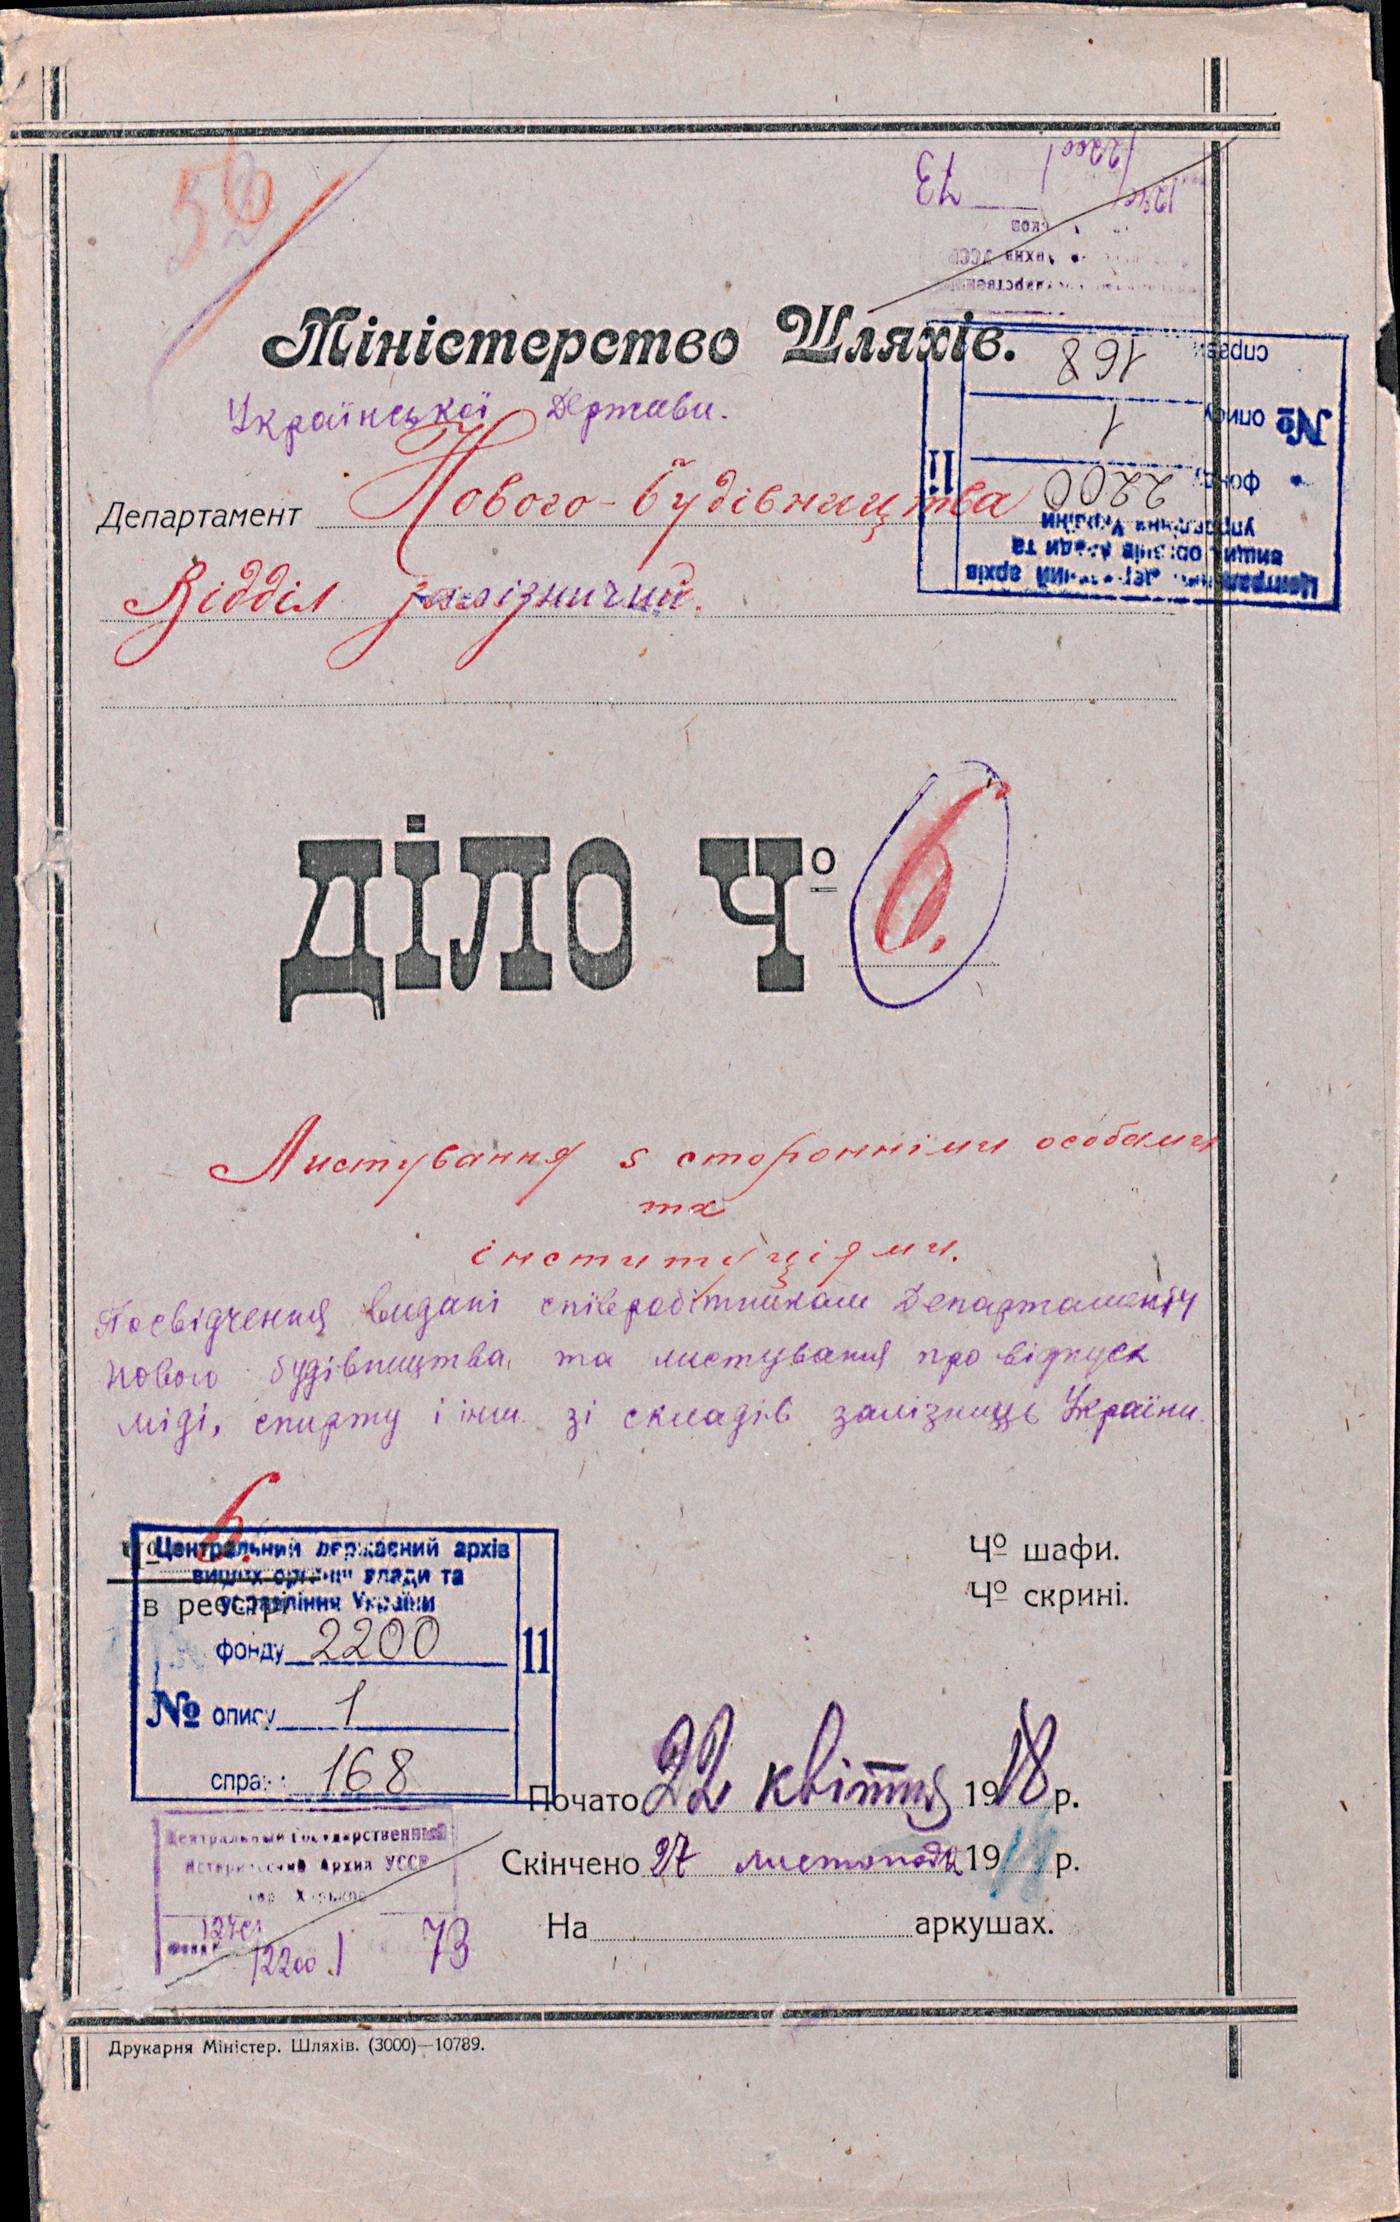 56
Міністерство Шляхів.
Української Держави.
Департамент Нового-будівництва
Відділ залізничий.
73
2200
справи 168
№ опису 1
фонду 2200
11
Центральний державний архів
вищих органів влади та
управління України
ДІЛО Чо 6.
Листування з сторонніми особами
та
інституціями.
Посвідчення видані співробітникам Департаменту
Нового будівництва, та листування про відпуск
міді, спирту і інш. зі складів залізниць України.
6.
в реєстрі
Чо шафи.
Чо скрині.
Центральний державний архів
вищих органів влади та
управління України
фонду 2200
№ опису 1
справи 168
11
Почато 22 квітня 1918 р.
Скінчено 27 листопада 1918 р.
На аркушах.
Центральный Государственный
Исторический Архив УССР
гор. Харьков
фонд
2200 1 73
Друкарня Міністер. Шляхів. (3000)—10789.